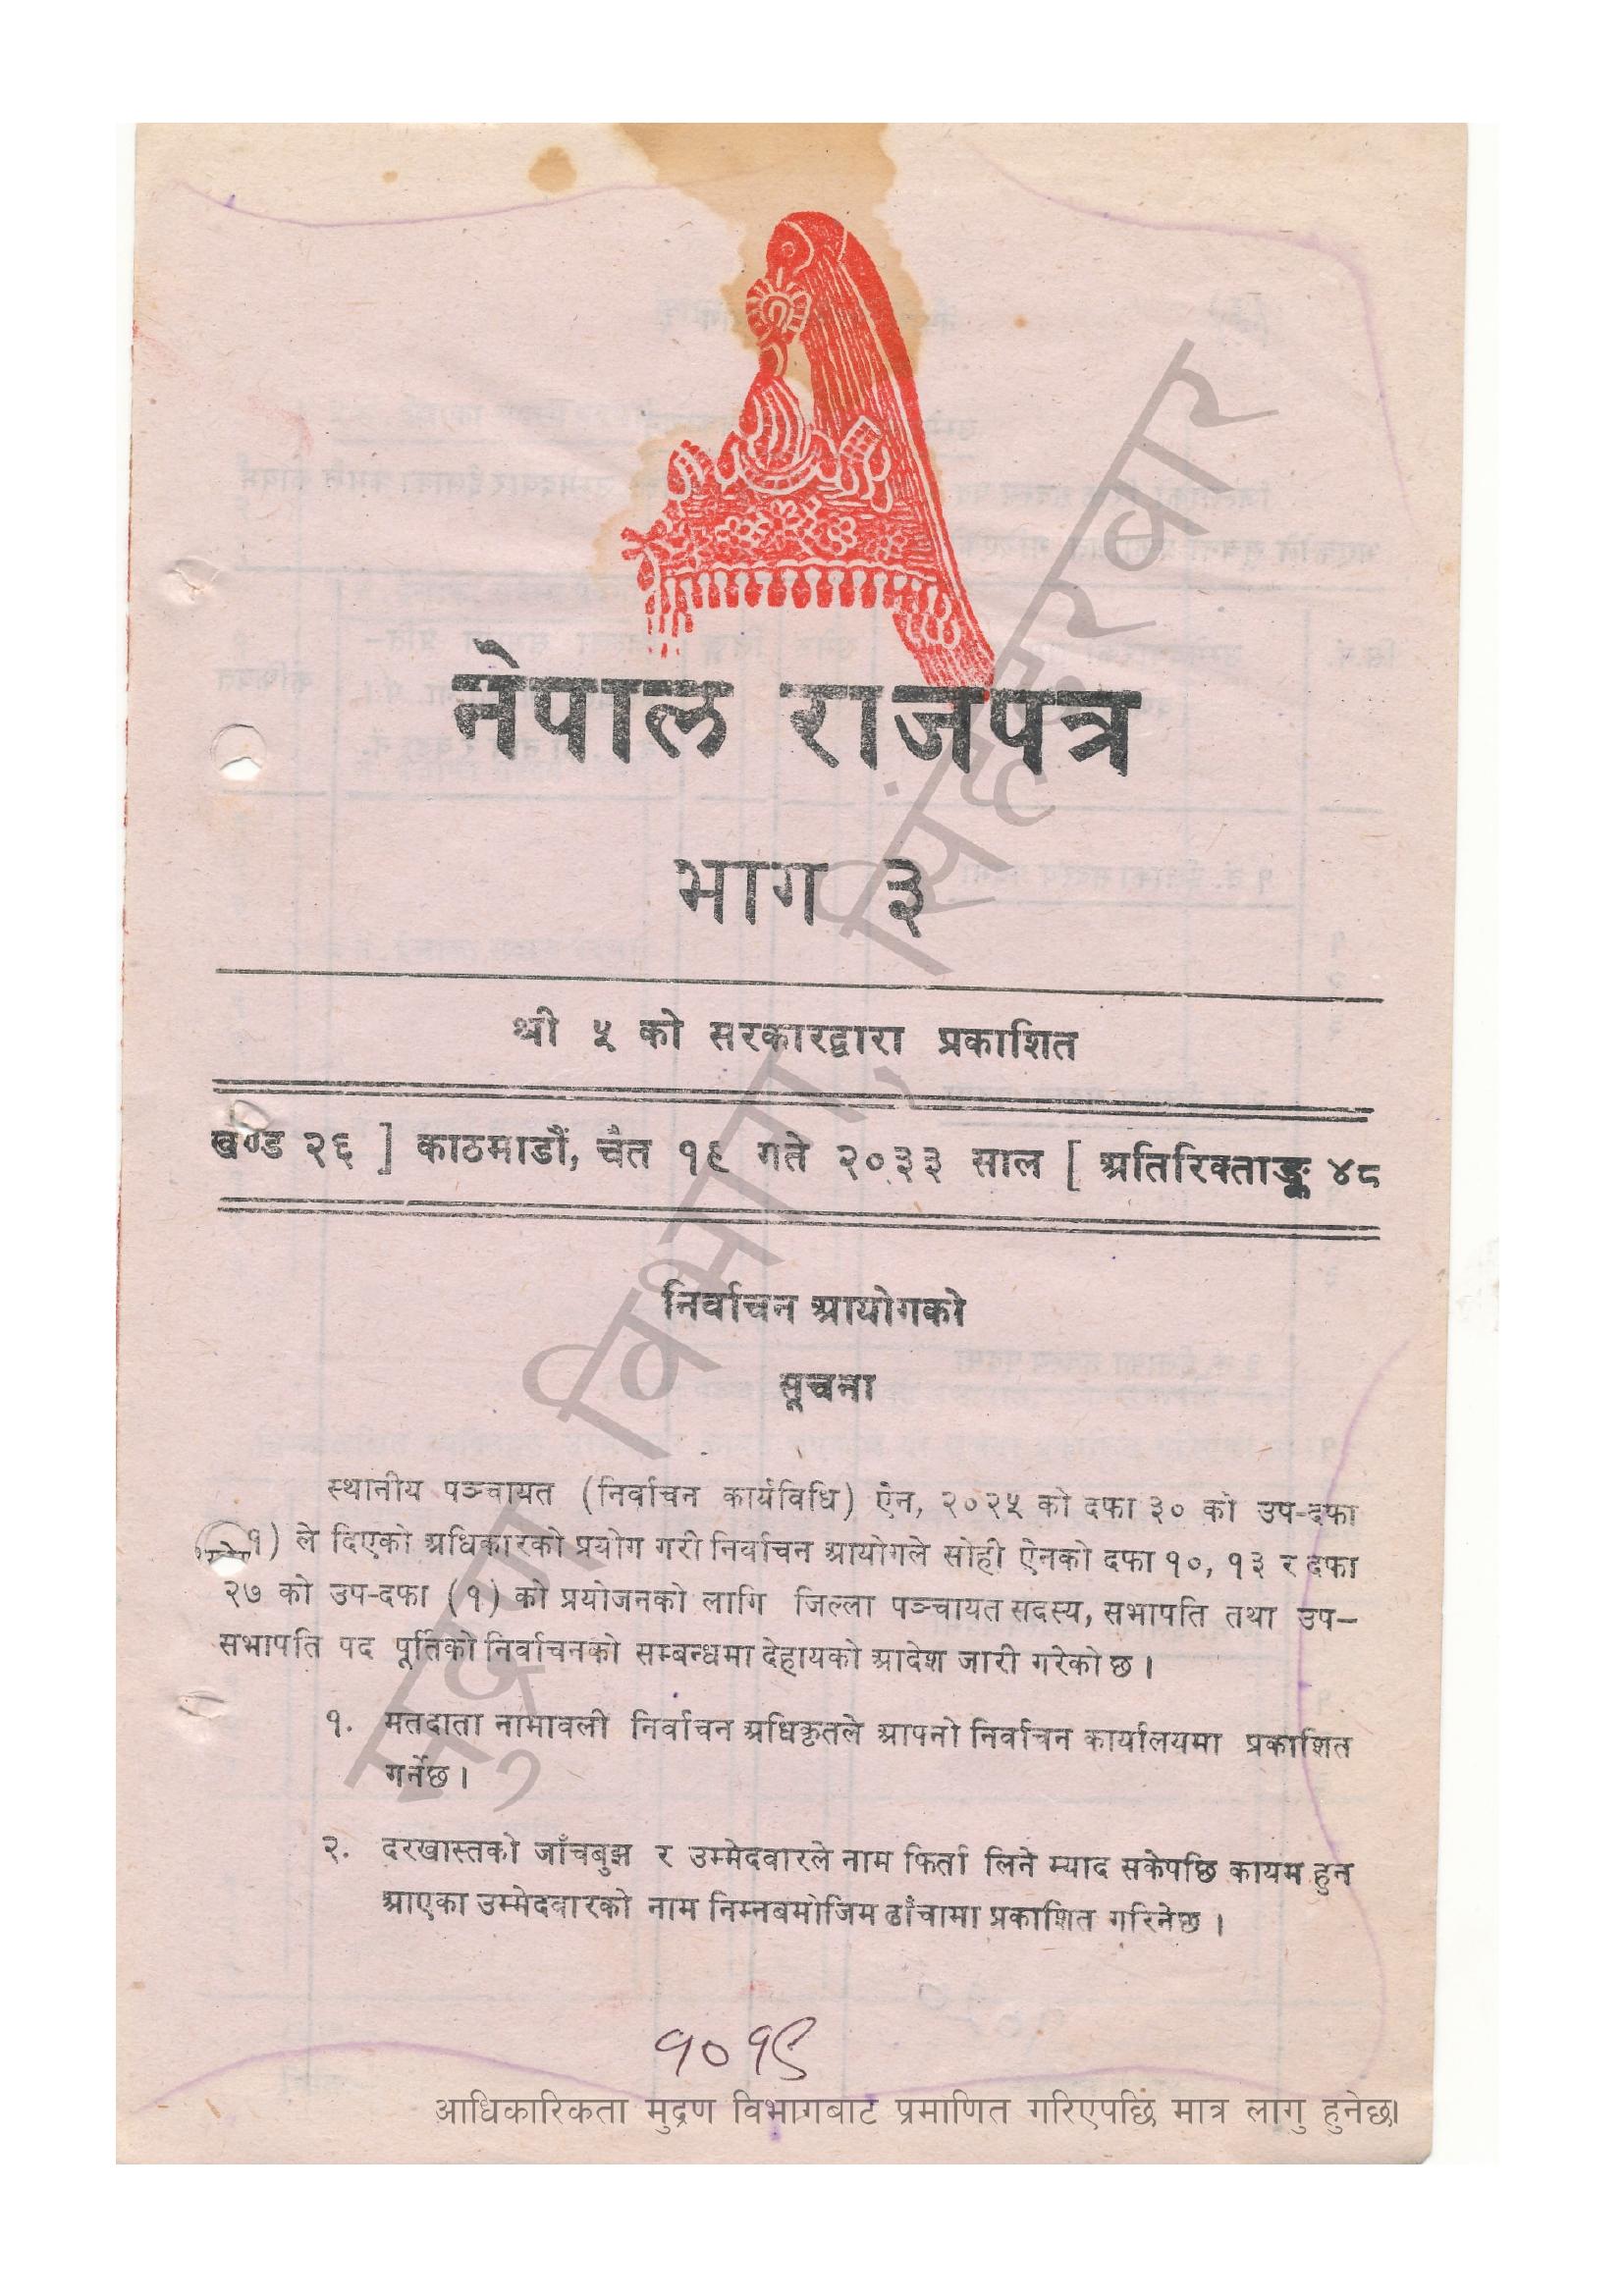 नेपाल राजपत्र
भाग ३
श्री ५ को सरकारद्वारा प्रकाशित
खण्ड २६ ] काठमाडौं, चैत १९ गते २०३३ साल [ अतिरिक्ताङ्क ४८
निर्वाचन आयोगको
सूचना
स्थानीय पञ्चायत (निर्वाचन कार्यविधि) ऐन, २०२५ को दफा ३० को उप-दफा
१) ले दिएको अधिकारको प्रयोग गरी निर्वाचन आयोगले सोही ऐनको दफा १०, १३ र दफा
२७ को उप-दफा (१) को प्रयोजनको लागि जिल्ला पञ्चायत सदस्य, सभापति तथा उप-
सभापति पद पूर्तिको निर्वाचनको सम्बन्धमा देहायको आदेश जारी गरेको छ ।
१. मतदाता नामावली निर्वाचन अधिकृतले आफ्नो निर्वाचन कार्यालयमा प्रकाशित
गर्नेछ ।
२. दरखास्तको जाँचबुझ र उम्मेदवारले नाम फिर्ता लिने म्याद सकेपछि कायम हुन
आएका उम्मेदवारको नाम निम्नबमोजिम ढाँचामा प्रकाशित गरिनेछ ।
१०१९
आधिकारिकता मुद्रण विभागबाट प्रमाणित गरिएपछि मात्र लागु हुनेछ।
मुद्रण विभाग, सिंहदरबार